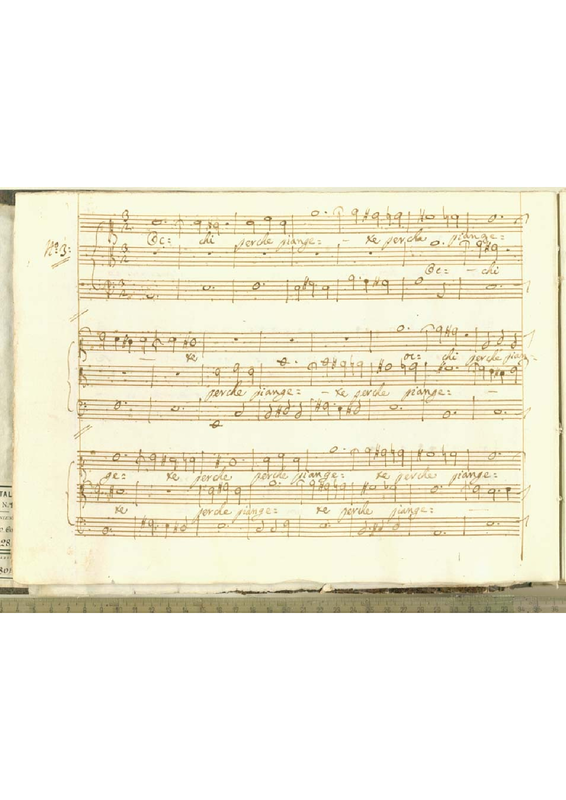 N.º 3:
Oc= chi perche piange= - te perche piange=
Oc= - chi
- te oc= chi perche pian=
perche piange= - te perche piange= -
ge= te perche perche piange= te perche piange=
te perche piange= te perche piange= -